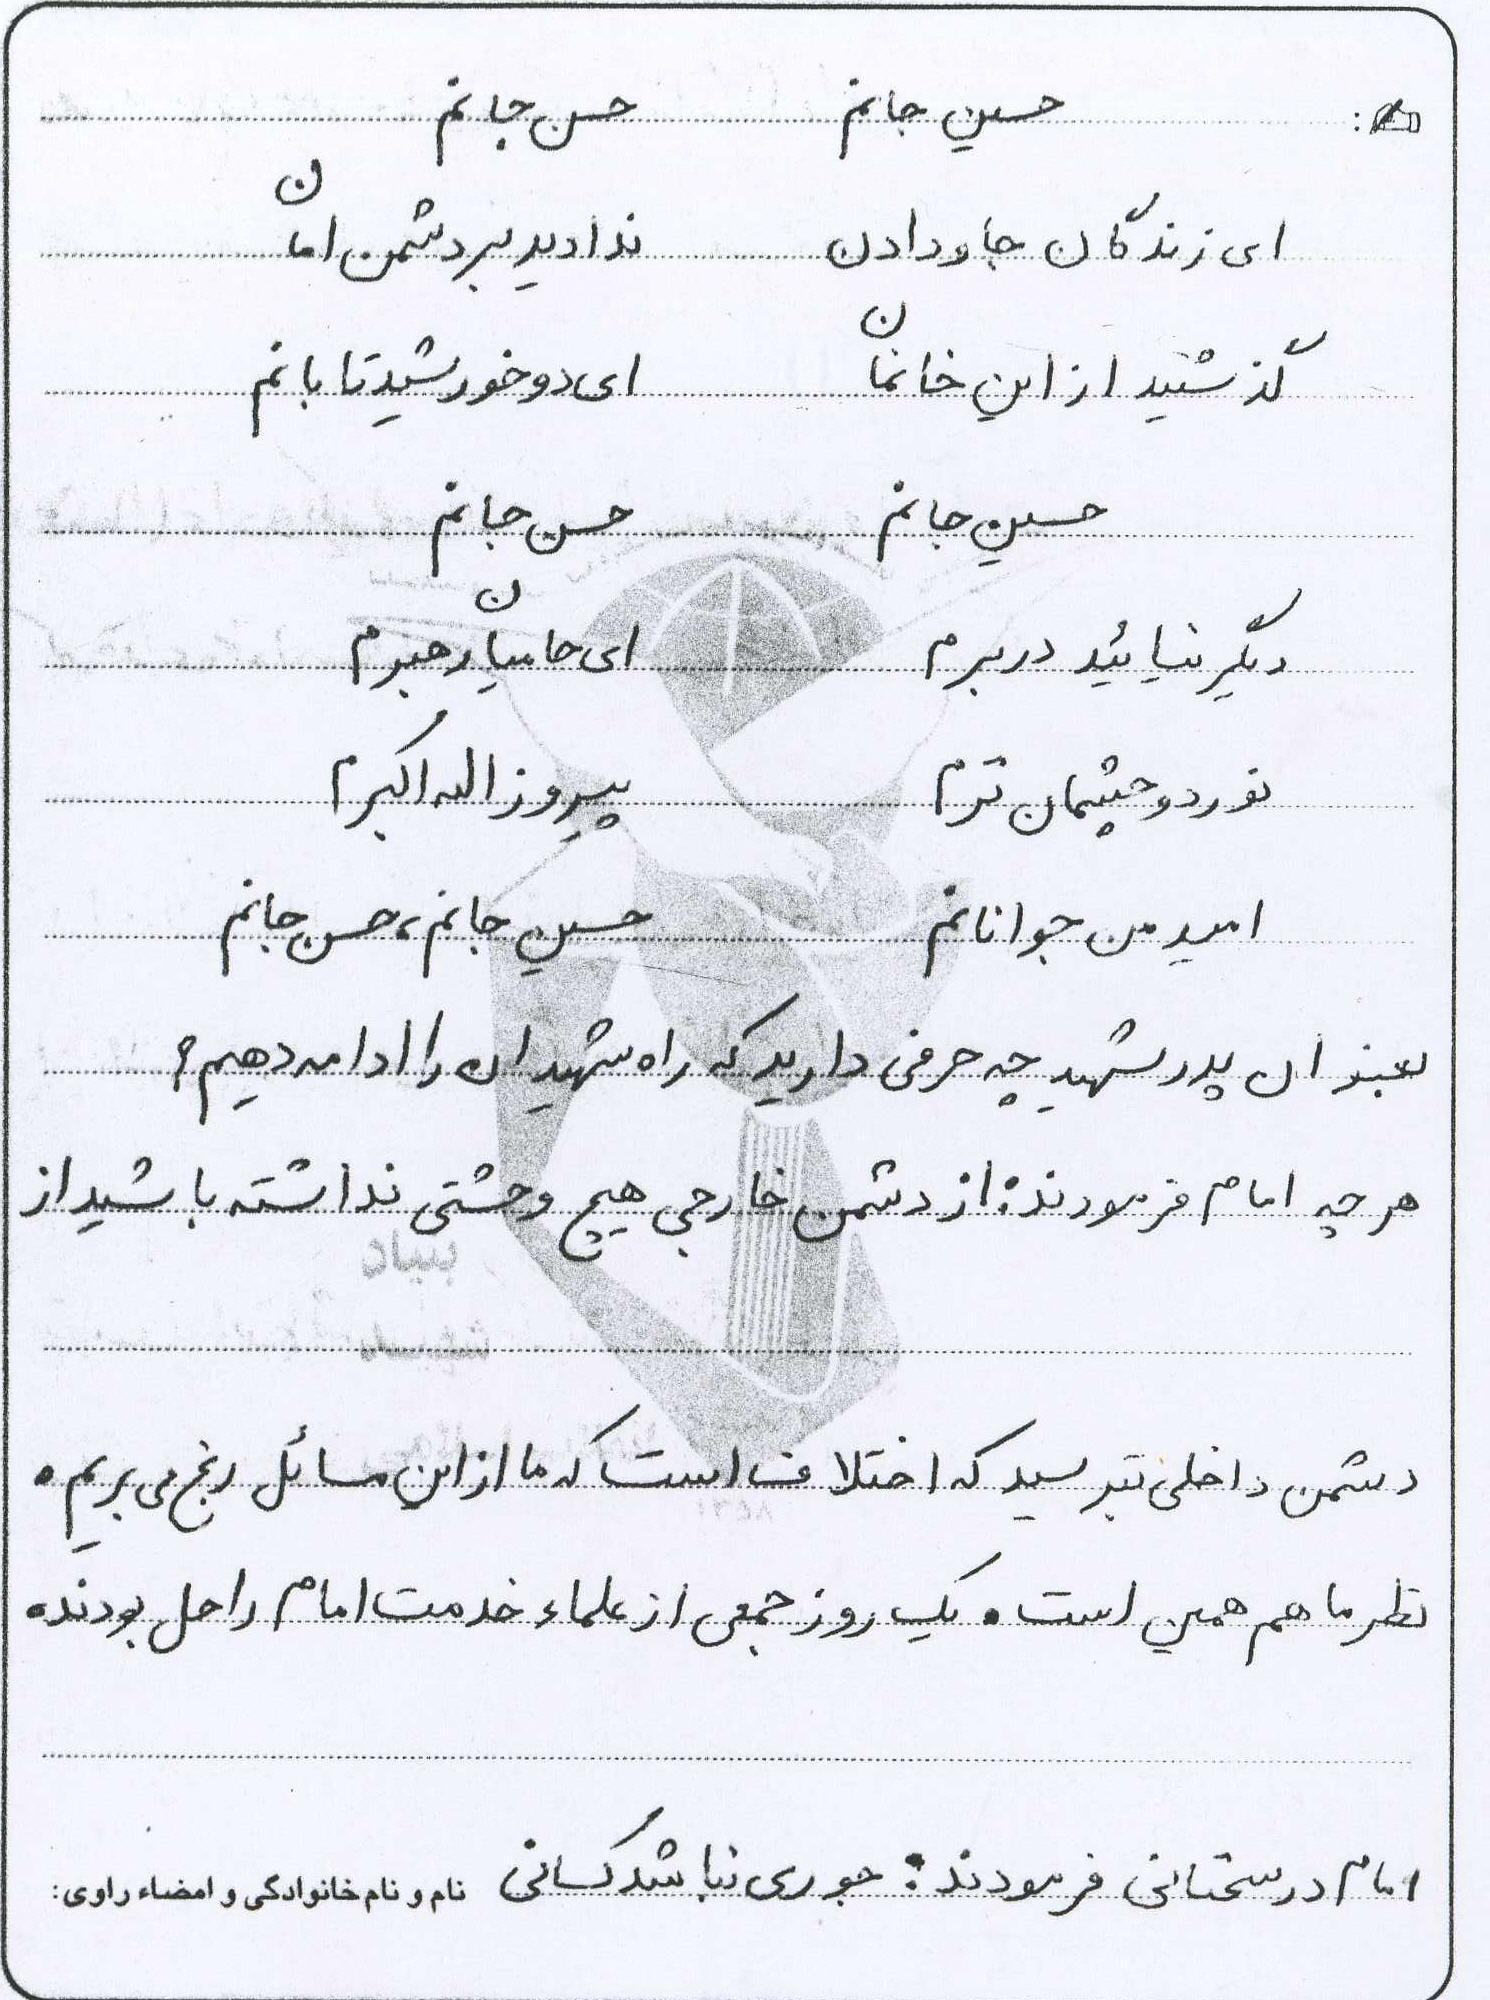 حسین جانم حسن جانم
ای زندگان جاودادن ندادید بر دشمن امان
گذشتید از این خانمان ای دو خورشید تابانم
حسین جانم حسن جانم
دیگر نیائید در برم ای حامیان رهبرم
نور دو چشمان ترم پیروز الله اکبرم
امید من جوانانم حسین جانم، حسن جانم
بعنوان پدر شهید چه حرفی دارید که راه شهیدان را ادامه دهیم؟
هر چه امام فرمودند: از دشمن خارجی هیچ وحشتی نداشته باشید از
دشمن داخلی بترسید که اختلاف است که ما از این مسائل رنج می بریم.
نظر ما هم همین است. یک روز جمعی از علماء خدمت امام راحل بودند.
امام در سخنانی فرمودند: جوری نباشد کسانی نام و نام خانوادگی و امضاء راوی: